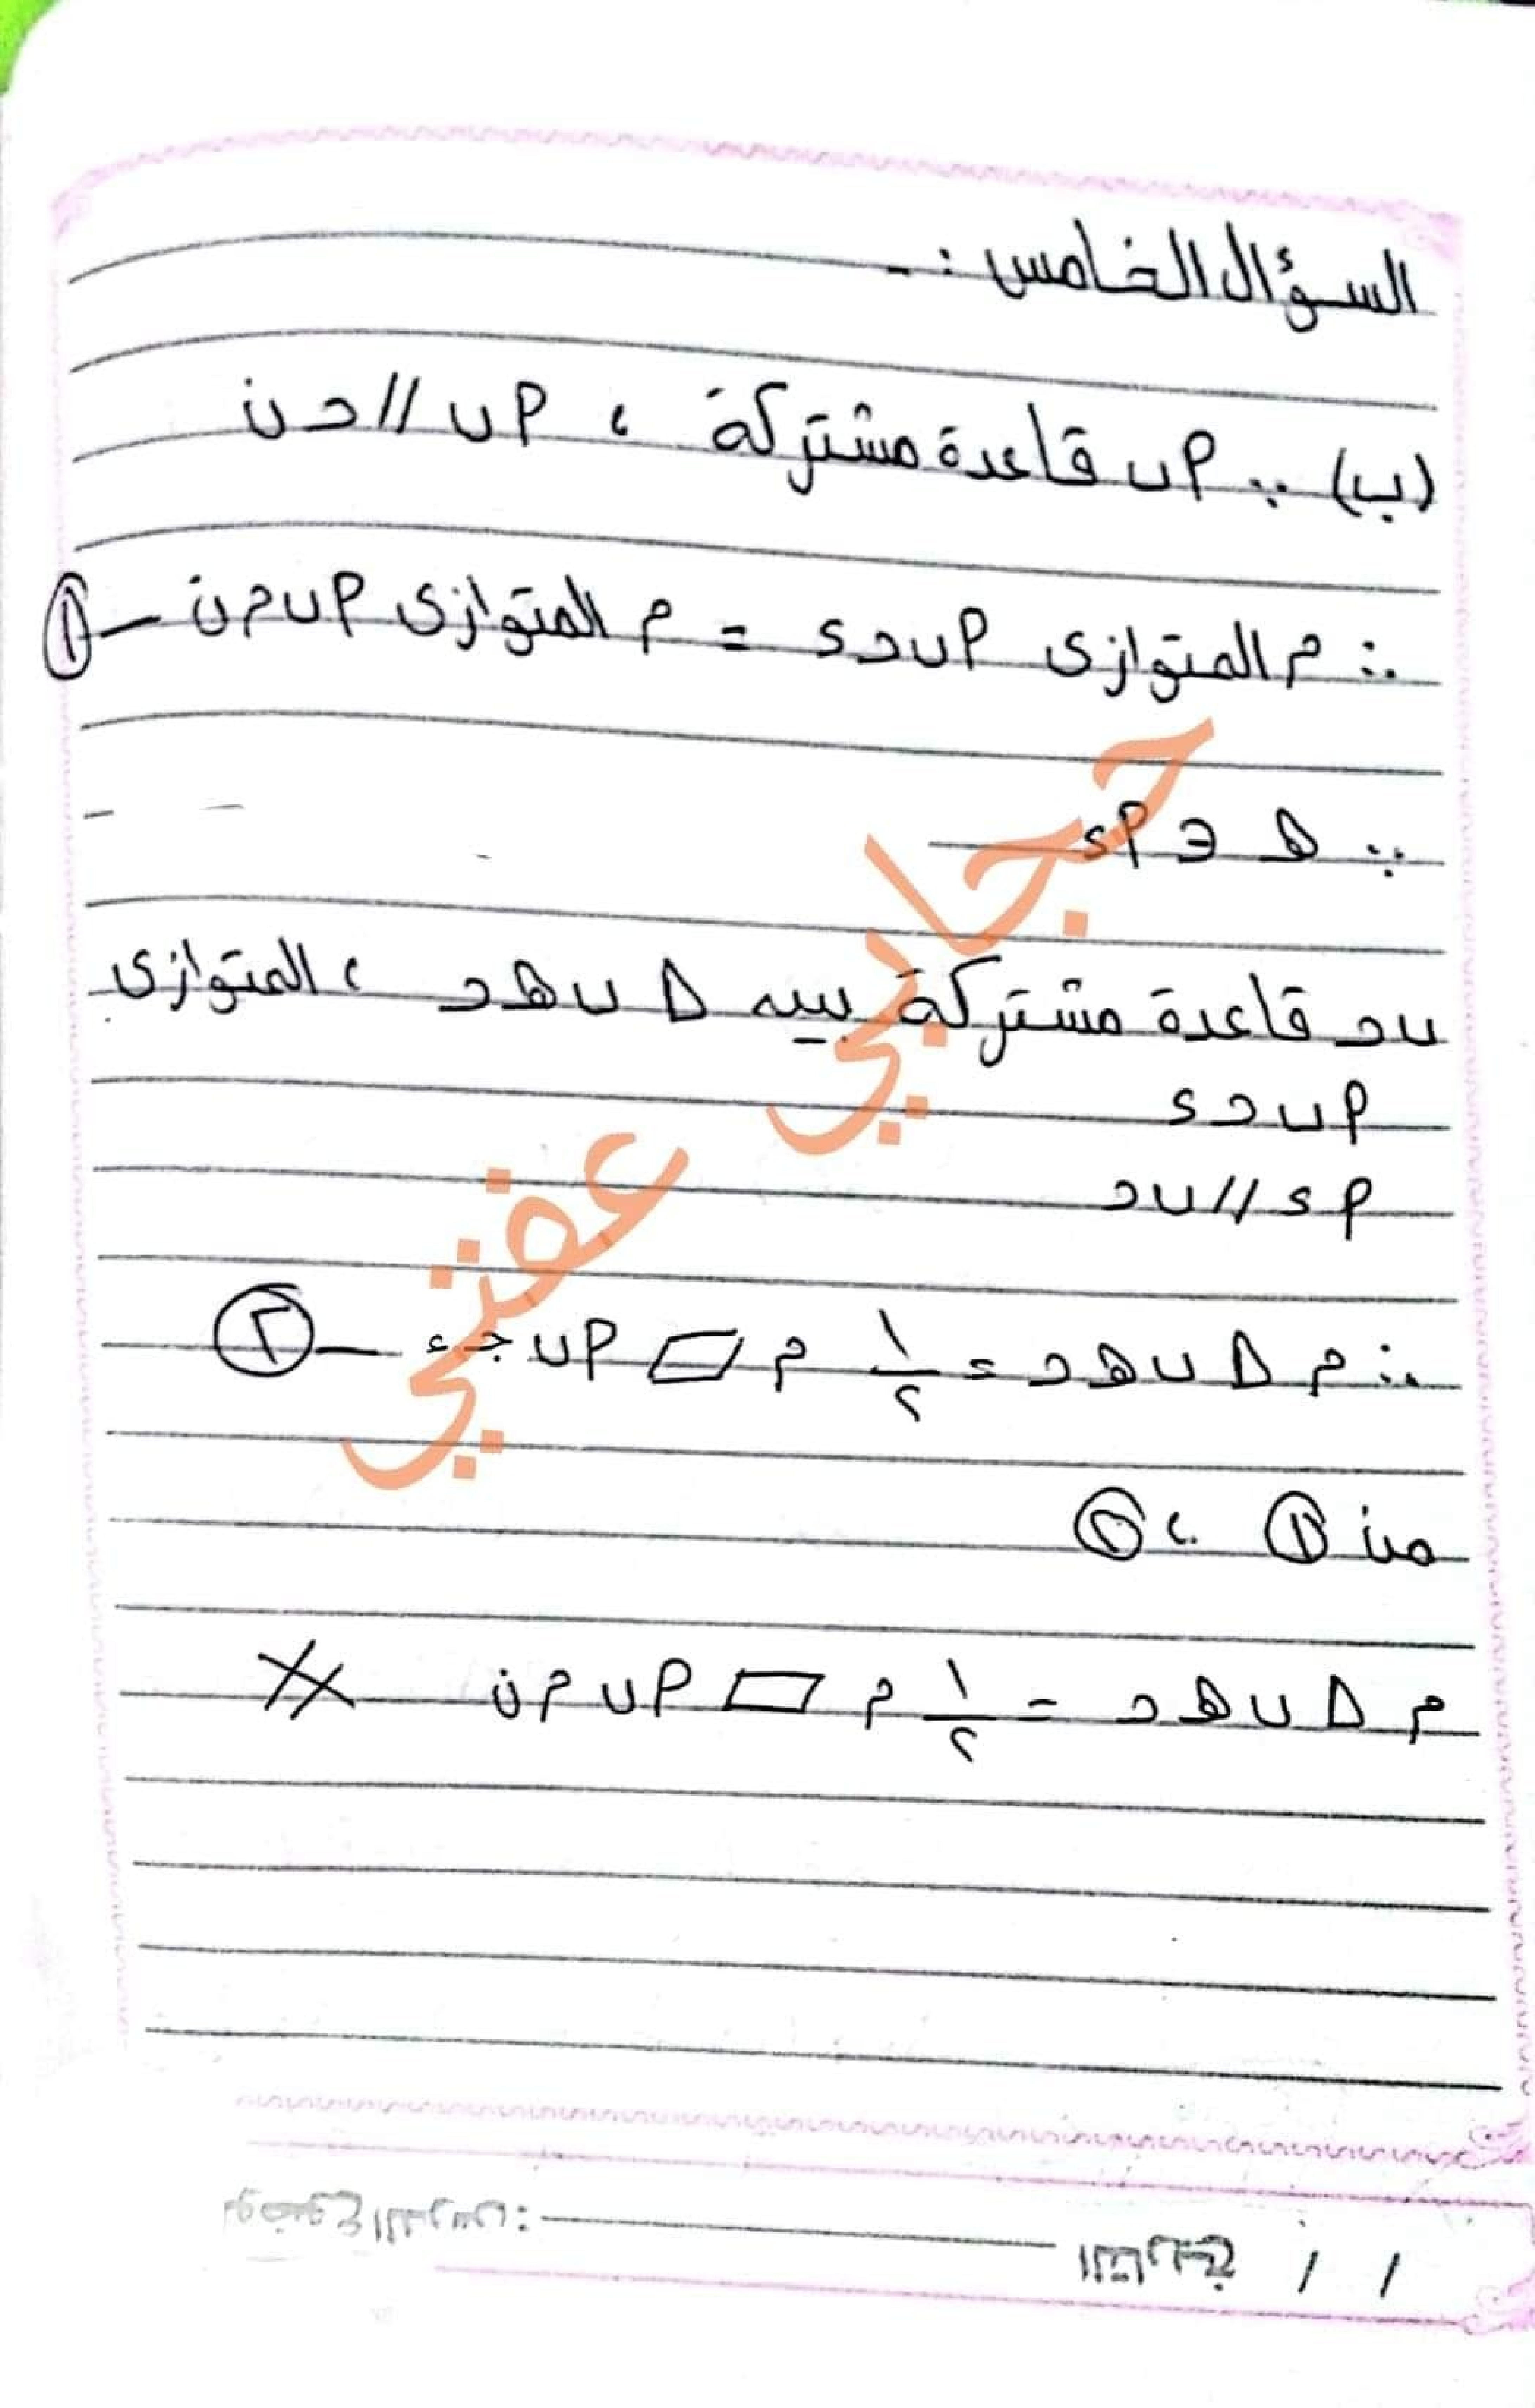 السؤال الخامس :-
(ب) ∵ أب قاعدة مشتركة ، أب // حن
∴ م المتوازى أبحد = م المتوازى أبمن — ①
∵ ه ∈ أد
بح قاعدة مشتركة بين △ بهح ، المتوازى
أبحد
أد // بح
∴ م △ بهح = ١/٢ م ▱ أبجء — ②
من ① ، ②
م △ بهح = ١/٢ م ▱ أبمن
حجابي عفتي